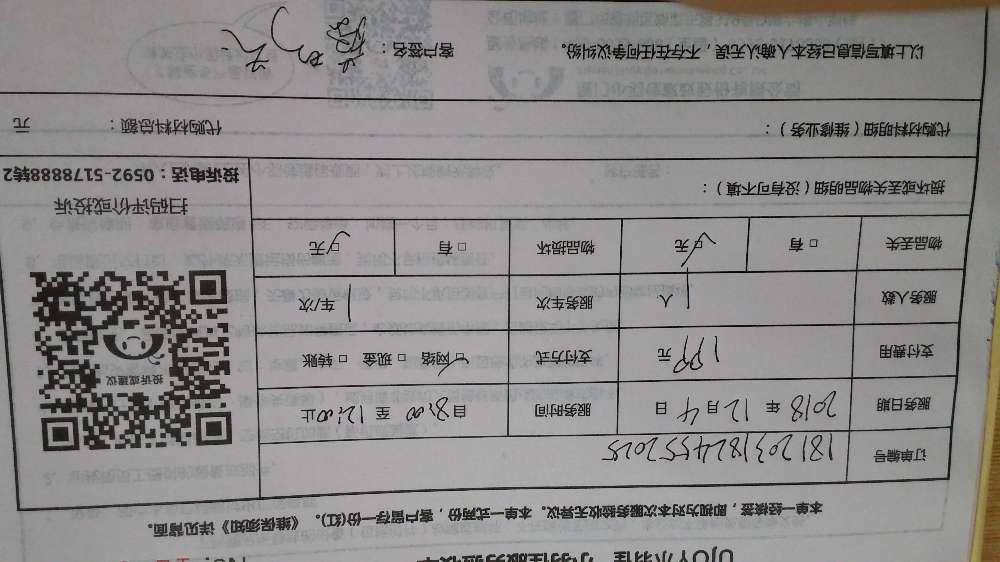 UJOY小羽佳
本单一经接签，即视为对本次服务验收无异议。本单一式两份，客户留存一份(红)。《维保须知》详见背面。
订单编号 1812031824552025
服务日期 2018 年 12 月 4 日 服务时间 自 8:00 至 12:00 止
支付费用 199 元 支付方式 ☑网络 □现金 □转账
服务人数 1 人 服务车次 1 车/次
物品丢失 □有 ☑无 物品损坏 □有 ☑无
投诉或建议
扫码评价或投诉
投诉电话：0592-5178888转2
损坏或丢失物品明细（没有可不填）：
代购材料明细（维修业务）： 代购材料总额： 元
以上填写信息已经本人确认无误，不存在任何争议纠纷。 客户签名：